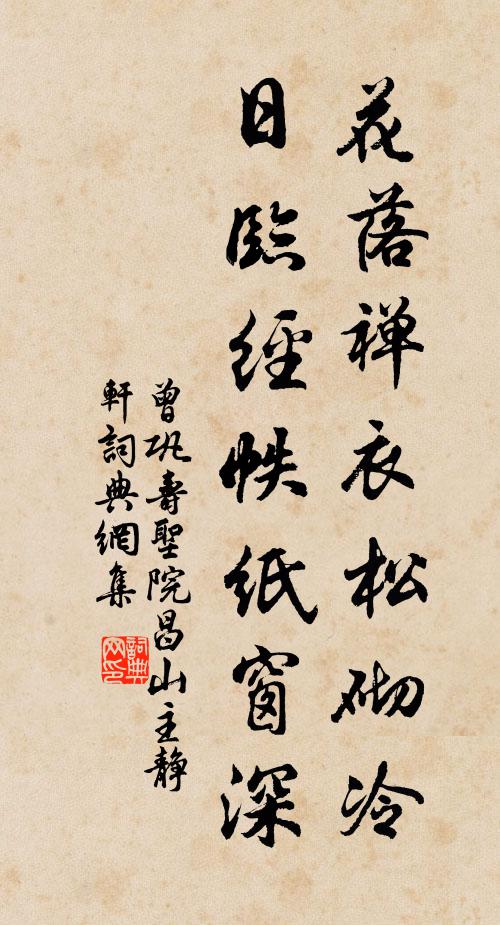 花落禅衣松砌冷
日臨經帙纸窗深
曾巩壽聖院昌山主静
軒詞典網集
詞典
网印